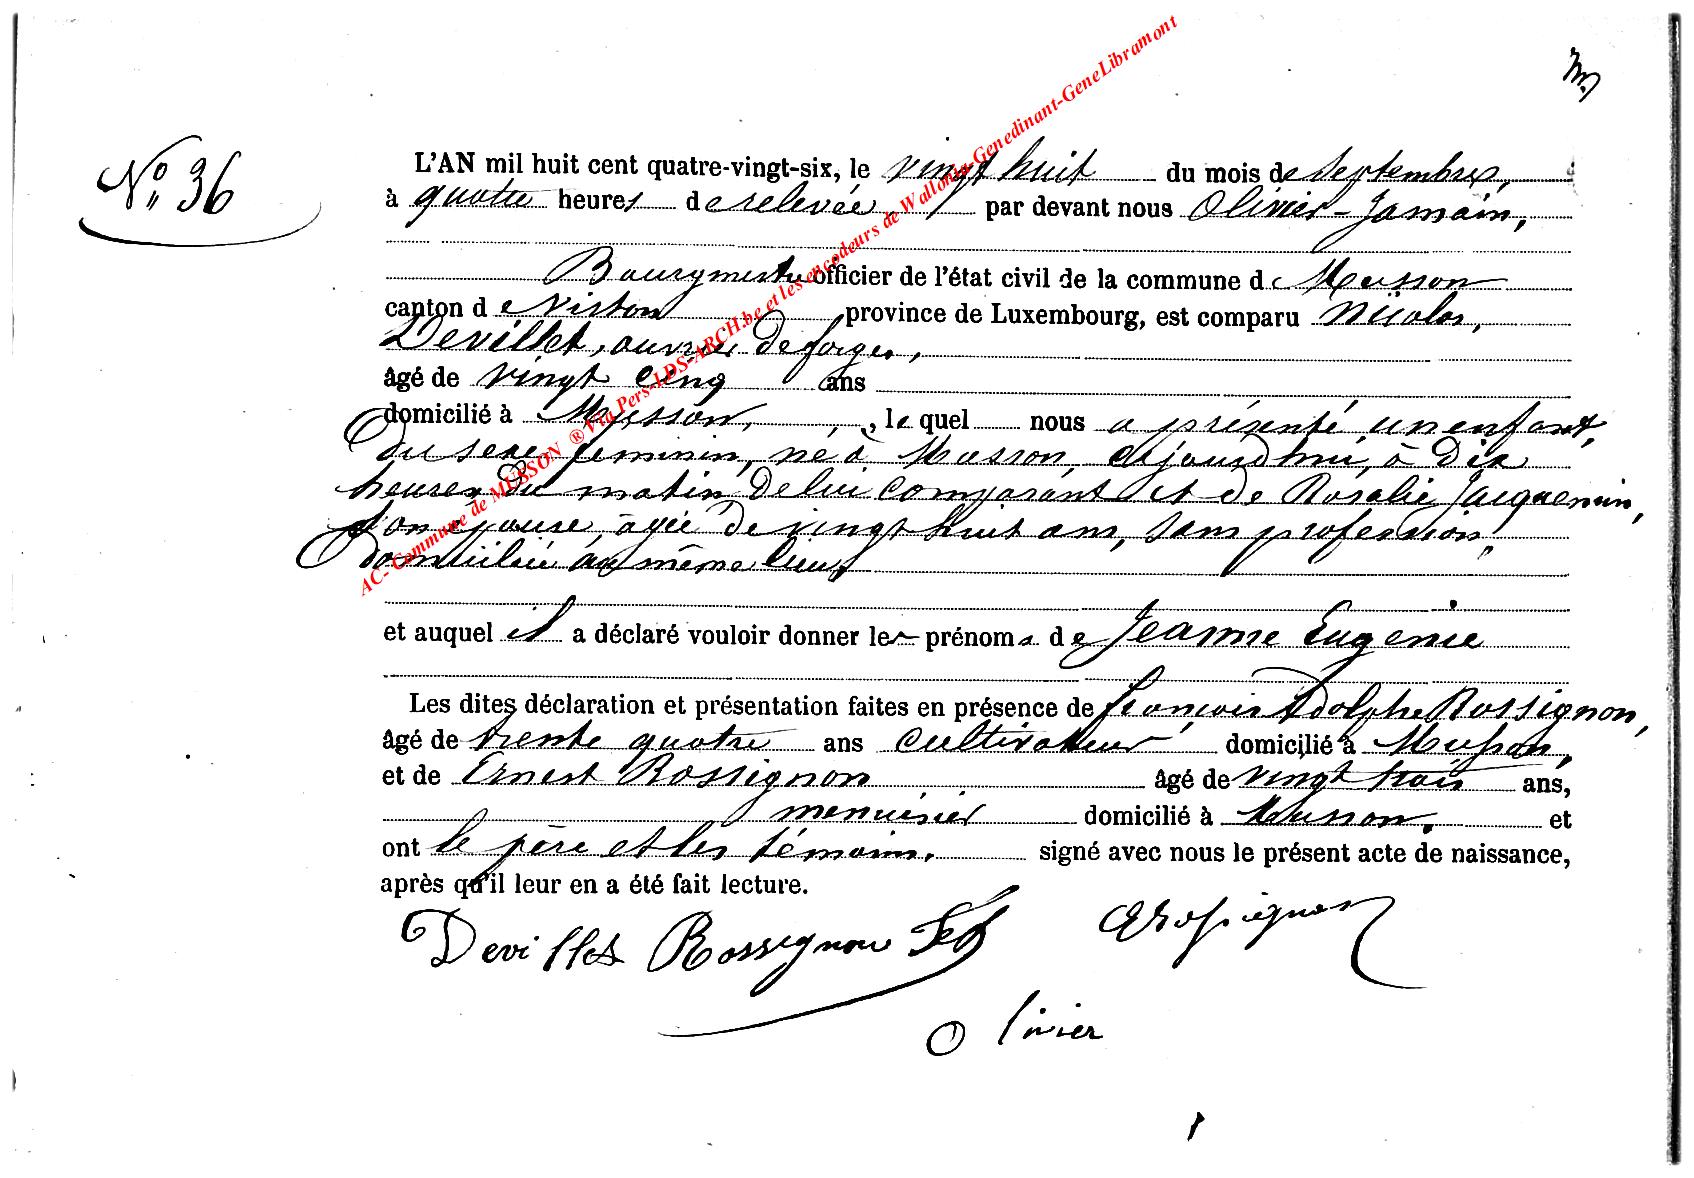 N° 36
L'AN mil huit cent quatre-vingt-six, le vingt huit du mois de septembre,
à quatre heures de relevée, par devant nous Olivier-Jamain,
Bourgmestre officier de l'état civil de la commune de Musson
canton de Virton province de Luxembourg, est comparu Nicolas,
Devillet, ouvrier de forges,
âgé de vingt cinq ans
domicilié à Musson, , le quel nous a présenté un enfant,
du sexe feminin, né à Musson, aujourd'hui, à dix
heures du matin, de lui comparant et de Rosalie Jacquemin,
son épouse, âgée de vingt huit ans, sans profession,
domiciliée au même lieu,
et auquel il a déclaré vouloir donner les prénoms de Jeanne Eugénie
Les dites déclaration et présentation faites en présence de François Adolphe Rossignon,
âgé de trente quatre ans cultivateur domicilié à Musson,
et de Ernest Rossignon âgé de vingt trois ans,
menuisier domicilié à Musson. et
ont le père et les témoins. signé avec nous le présent acte de naissance,
après qu'il leur en a été fait lecture.
Devillet Rossignon ERossignon
Olivier
AC- Commune de MUSSON ® Via Pers-LDS-ARCH.be et les encodeurs de Wallonia-Genedinant-GeneLibramont